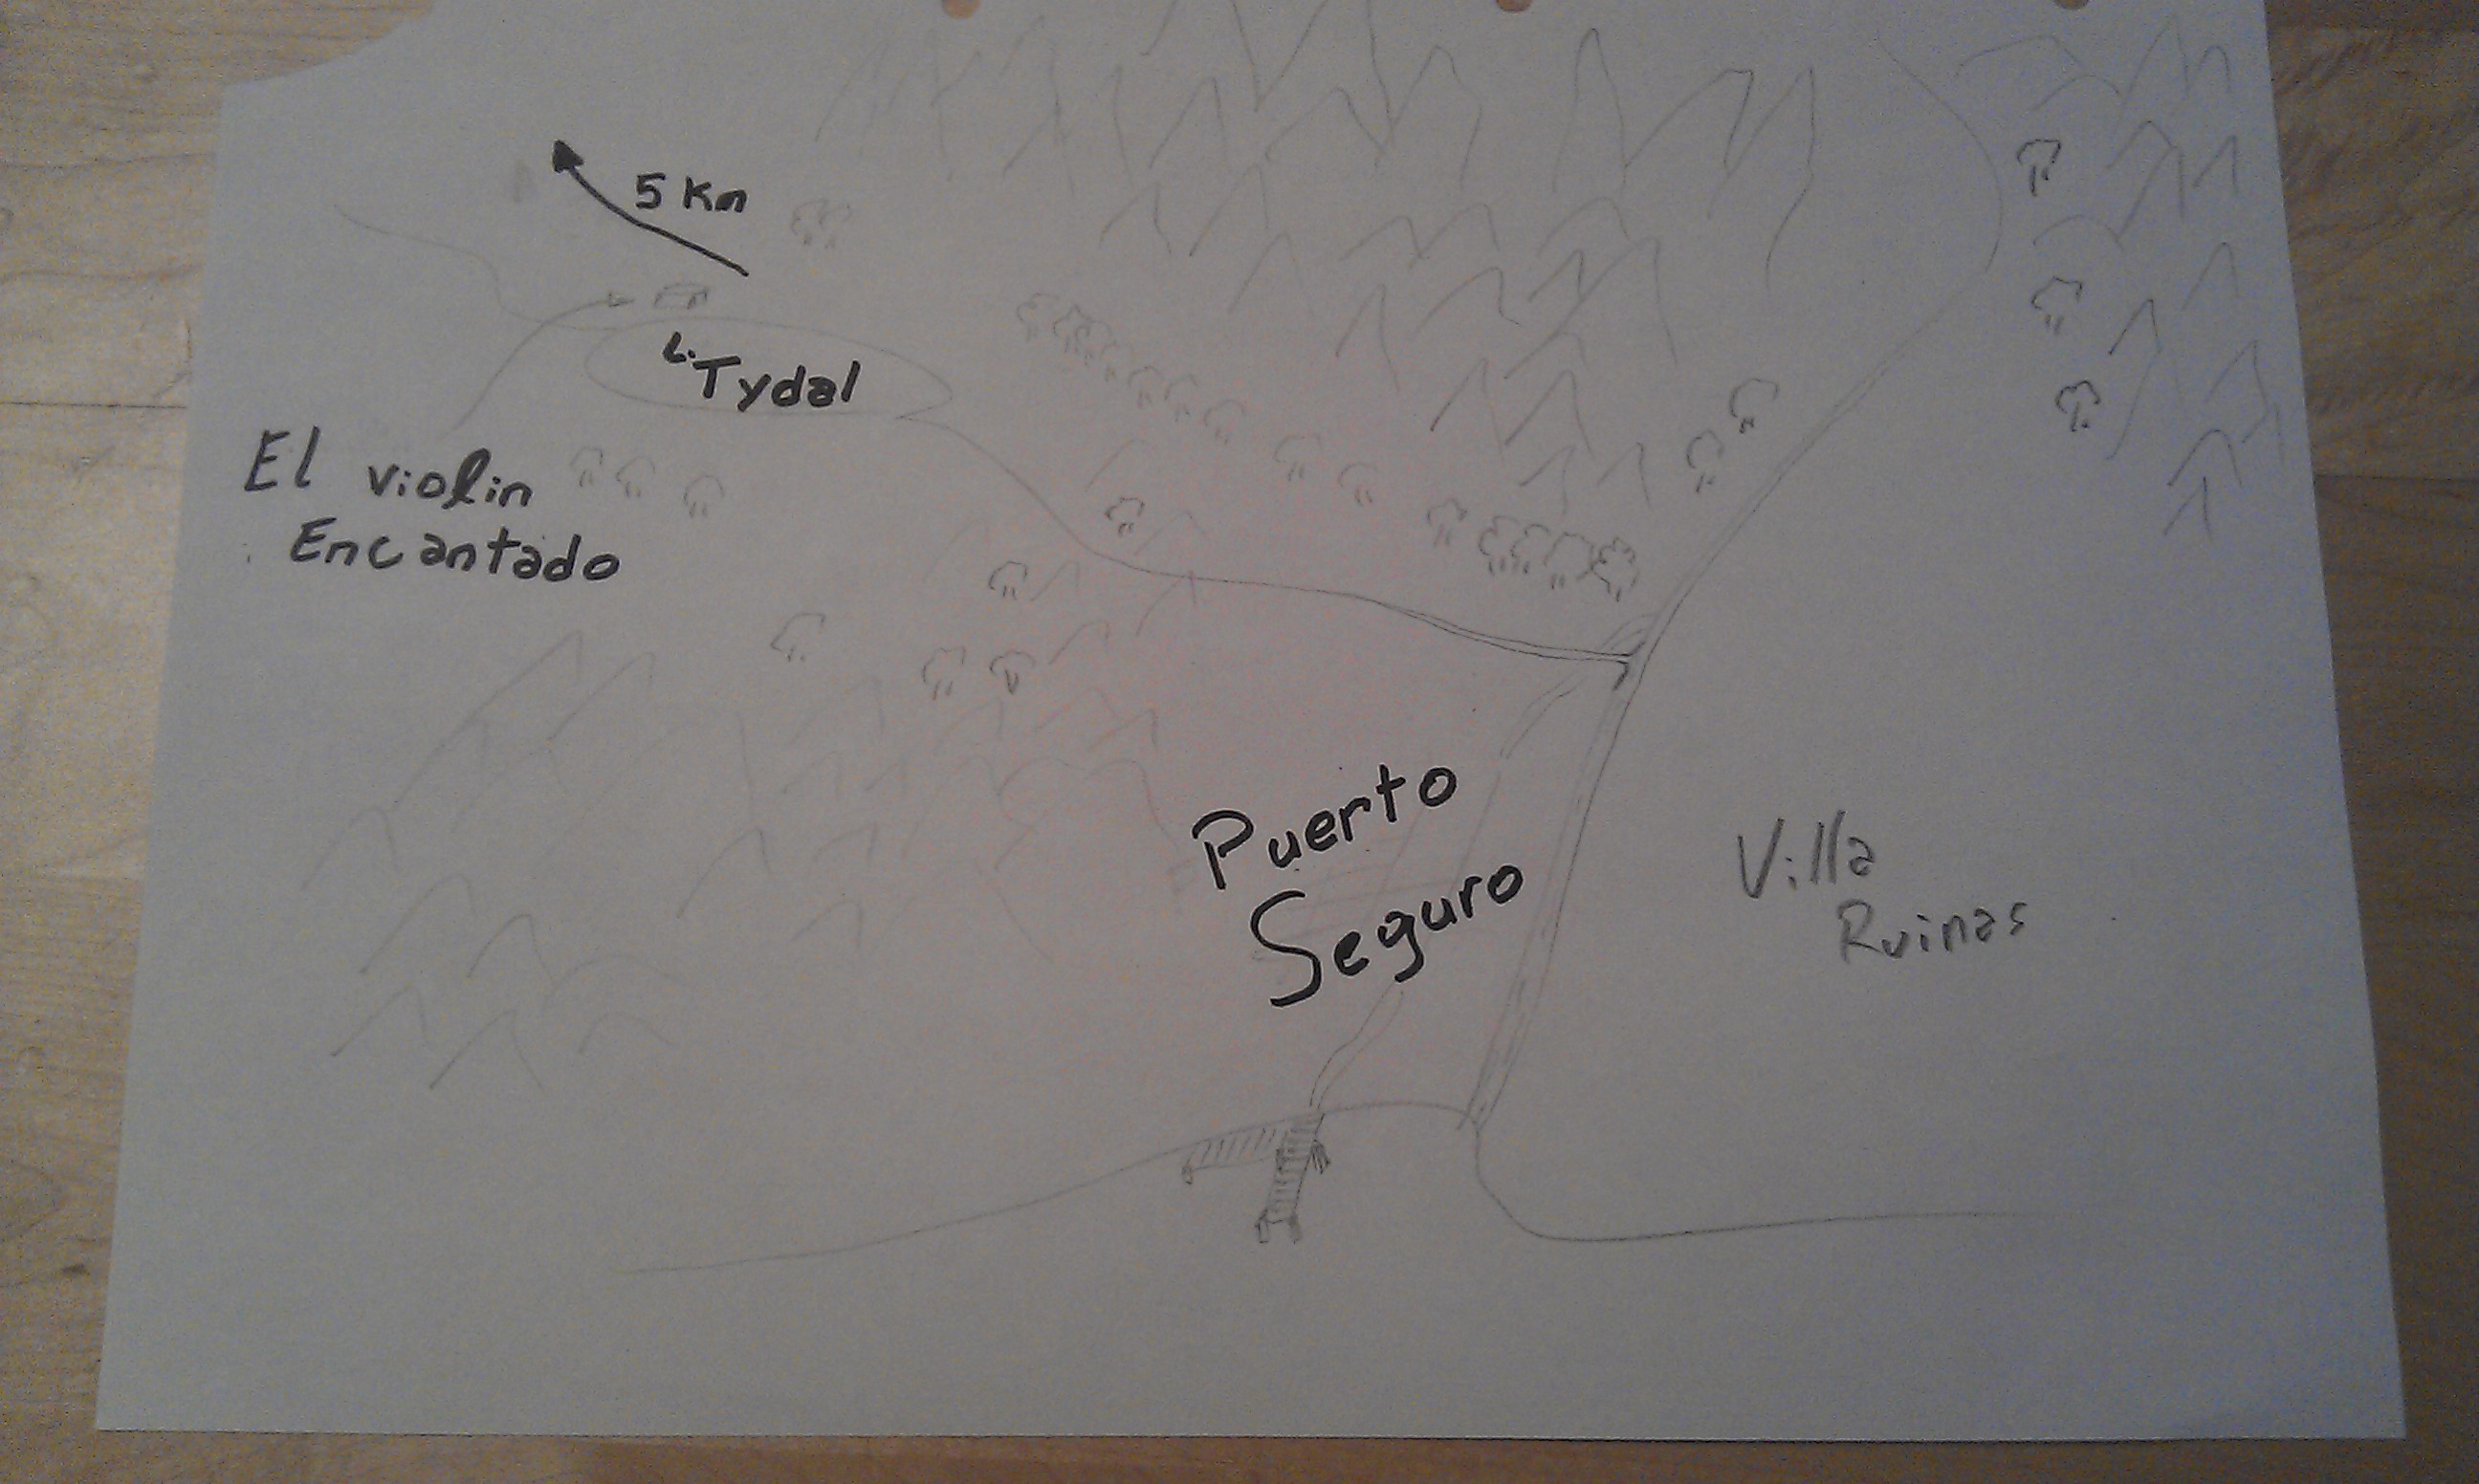 5 Km
L. Tydal
El violin
Encantado
Puerto
Seguro
Villa
Ruinas